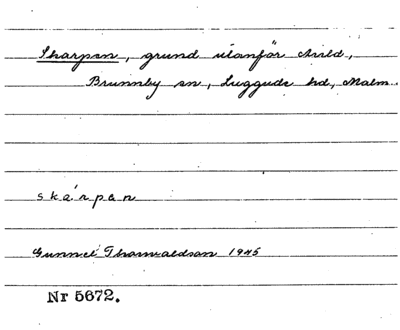 Skarpen, grund utanför Arild,
Brunnby sn, Luggude hd, Malm.
skárpen
Gunnel Thorvaldson 1945
Nr 5672.